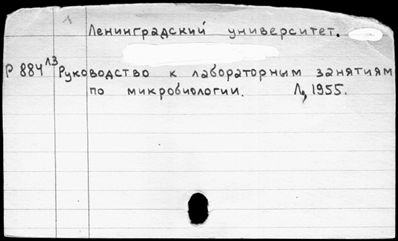 Ленинградский университет.
Р 884 л3 Руководство к лабораторным занятиям
по микробиологии. Л, 1955.